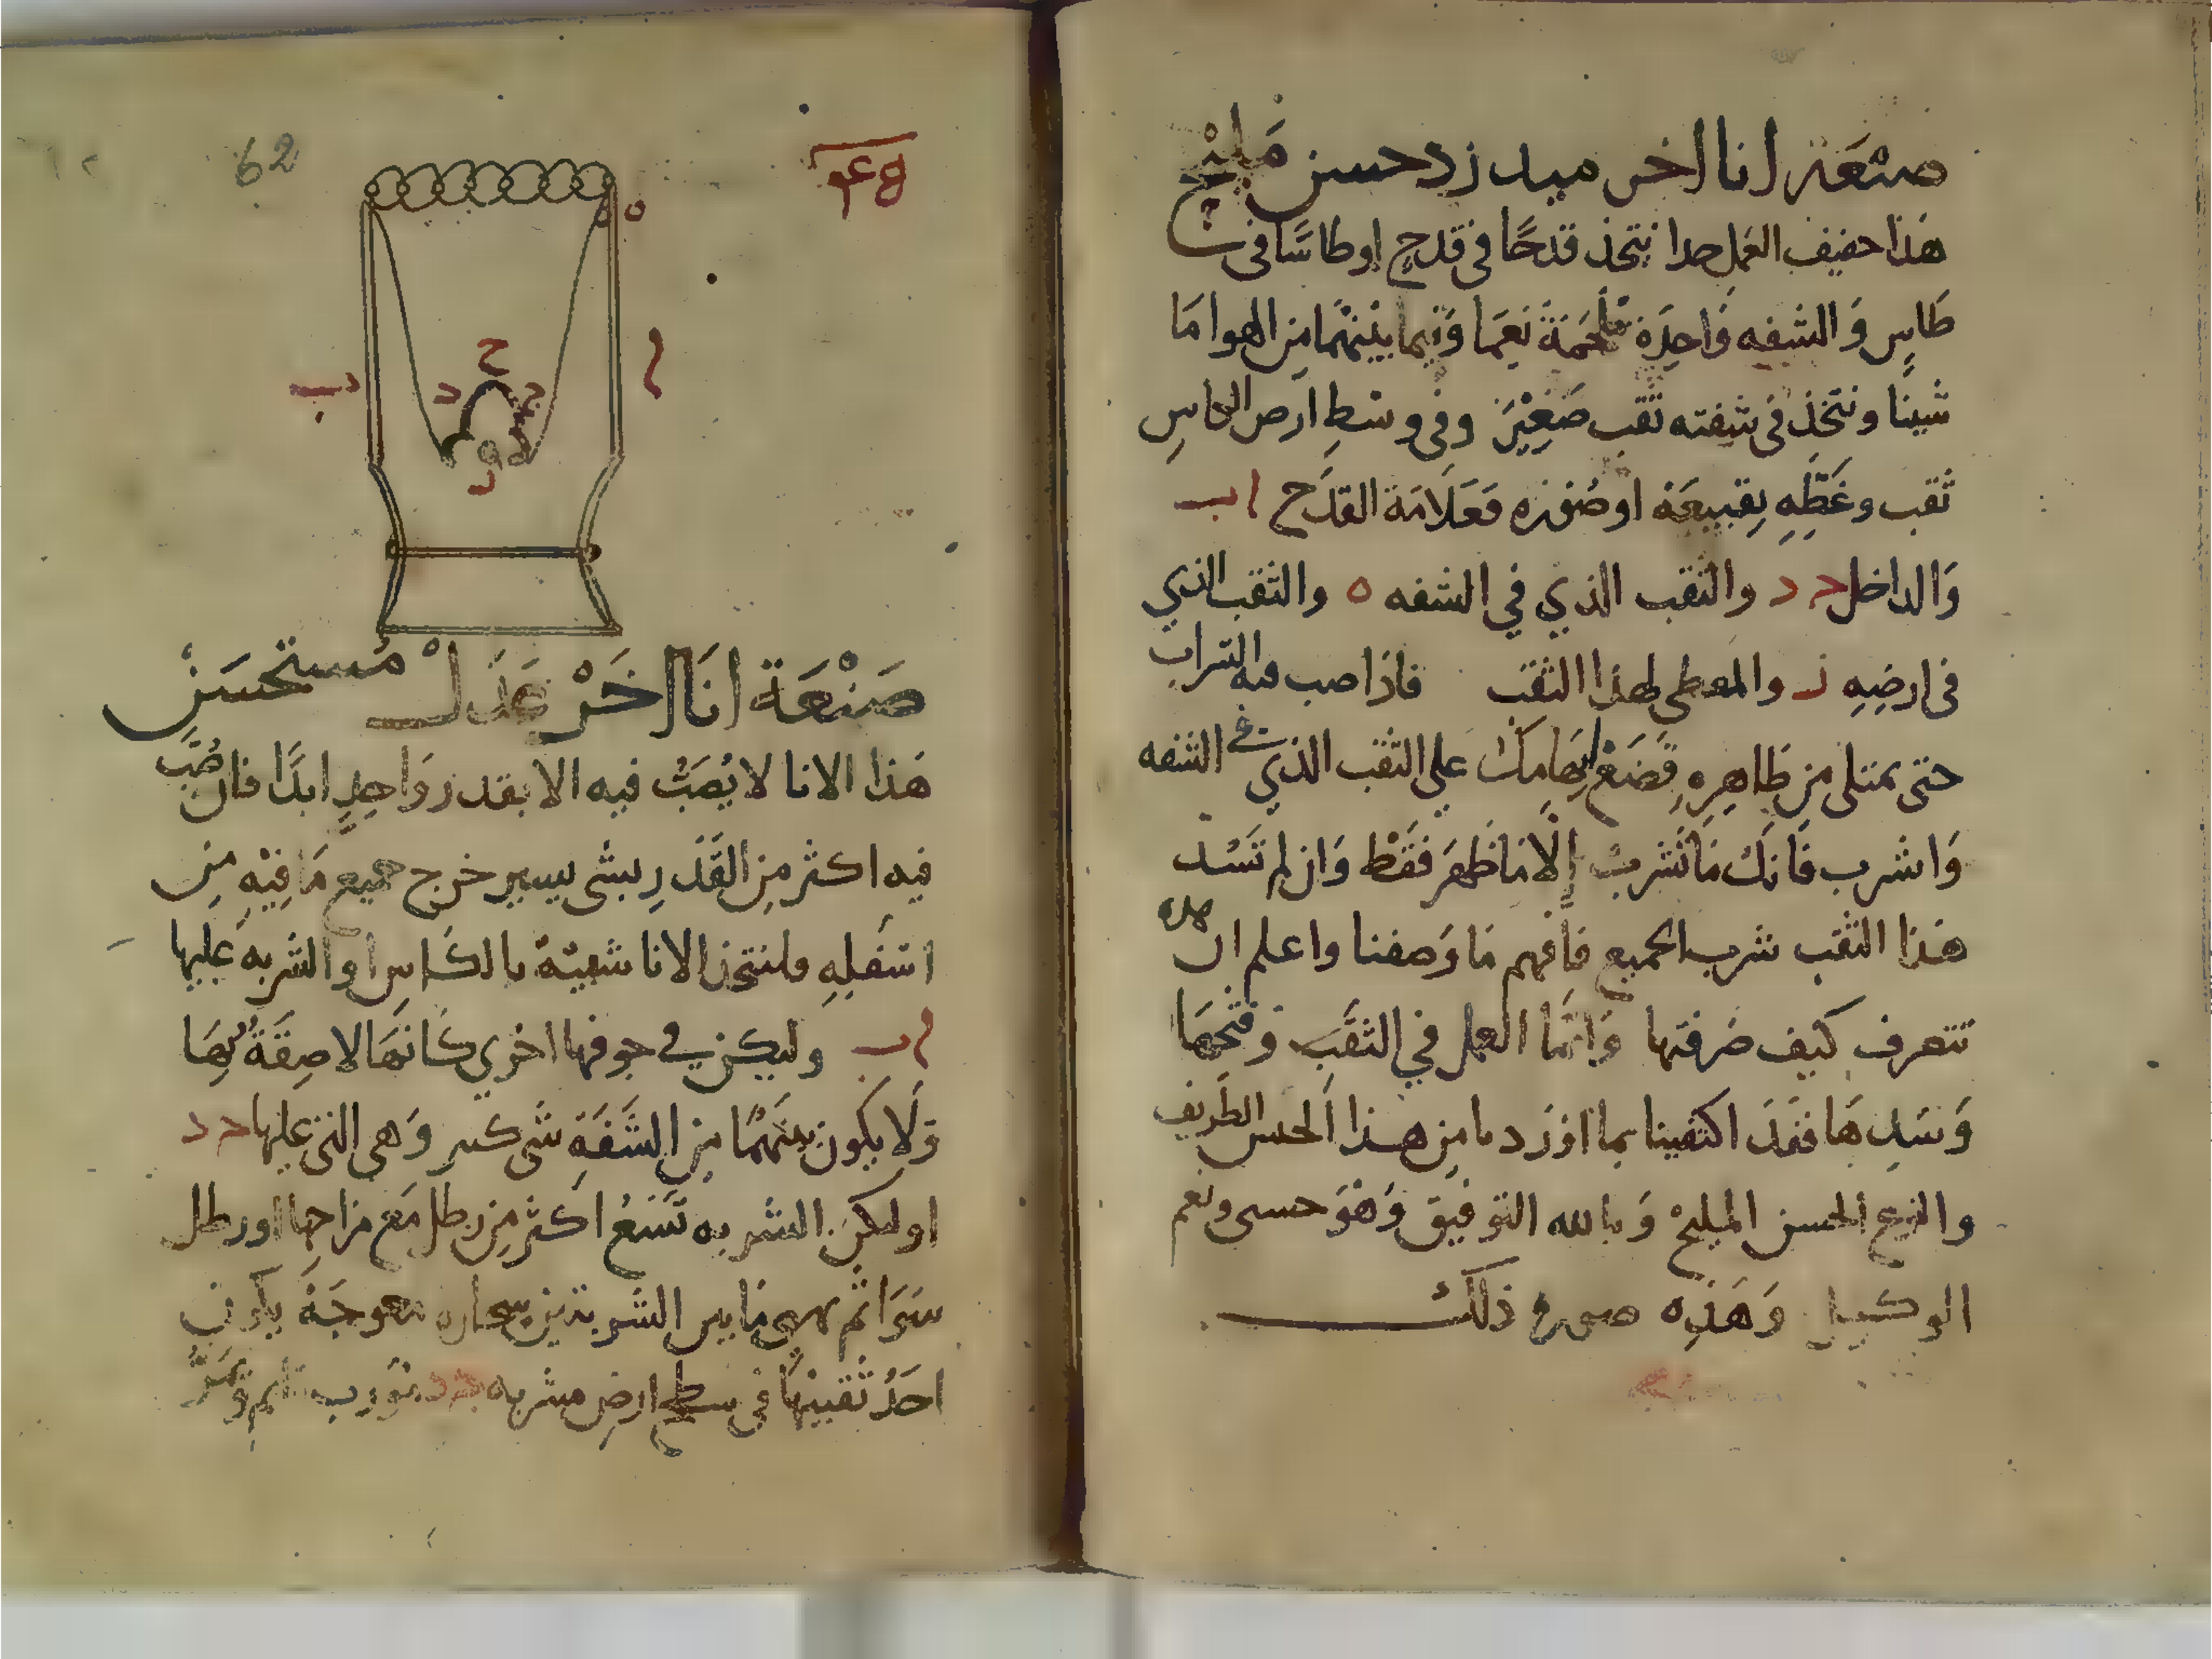 صنعة انا اخر مبدرد حسن مليح
هذا خفيف العمل جدا نتخذ قدحًا في قدح او طاسًا في
طاسٍ وَالشفه وَاحدَة ملحمَة نعمَا وَفيما بينهمَا مِن الهوا مَا
شينا ونتخذ في شفته ثقب صَغِيْر وفي وسَطِ ارض الطاسِ
ثقب وغَطِّهِ بِقبيعَة او صُنوبره فَعَلَامَة القدَح اب
وَالداخل حد والثقب الذي في الشفه ه والثقب الذي
في ارضِهِ ز والمعطي لهذا الثقب فاذا صب فيه الشراب
حتى يمتلي مِن ظاهِرِهِ فَضَعْ اِبهَامِكَ علي الثقب الذي في الشفه
وَاشرب فَانكَ مَا تَشرب إلّا مَا ظهرَ فقَطْ وَان لم تَسُد
هَذا الثقب شرب الجميع فافهم مَا وَصفنا واعلم ان هذه
تتعرف كيف صَرفتها وَانمَّا العمل في الثقَب وَفَتحهَا
وَسَدِهَا فقَد اكتفينا بما اوْرَدنا مِن هذا الجنس الظريف
والنوع الحسن المليحْ وَبالله التوفيق وَهْوَ حسبي ونعم
الوكيل وَهَذِه صورة ذلكَ
62
ه
ا
ب
ح
د
ز
صَنْعَة انَا اخَرْ عَدْلْ مُستحسَن
هَذا الانا لا يُصَبُّ فيه الا بقدرٍ وَاحِدٍ ابدًا فان صُبَّ
فيه اكثر مِن القَدَرِ بشي يسير خرج جميع مَا فِيْهِ مِن
اسْفلِهِ فلنتخذ الانا شبيْهًا بالكاس والشربه عَليها
اب وليكن في جوفها اخرى كَانهَا لاصِقَةٌ بِهَا
وَلَا يكون بينَهمَا مِن الشَّفَةِ شي كبير وَهي التي عليها حد
اولتكن الشربه تَسَعُ اكثر مِن رطل مَع مزاجها او رطل
سَوَا ثم يهيى مَا بين الشربتين سحاره معوجَة يكون
احَدُ ثقبيْهَا في سطح ارض مشربه حد بقرب